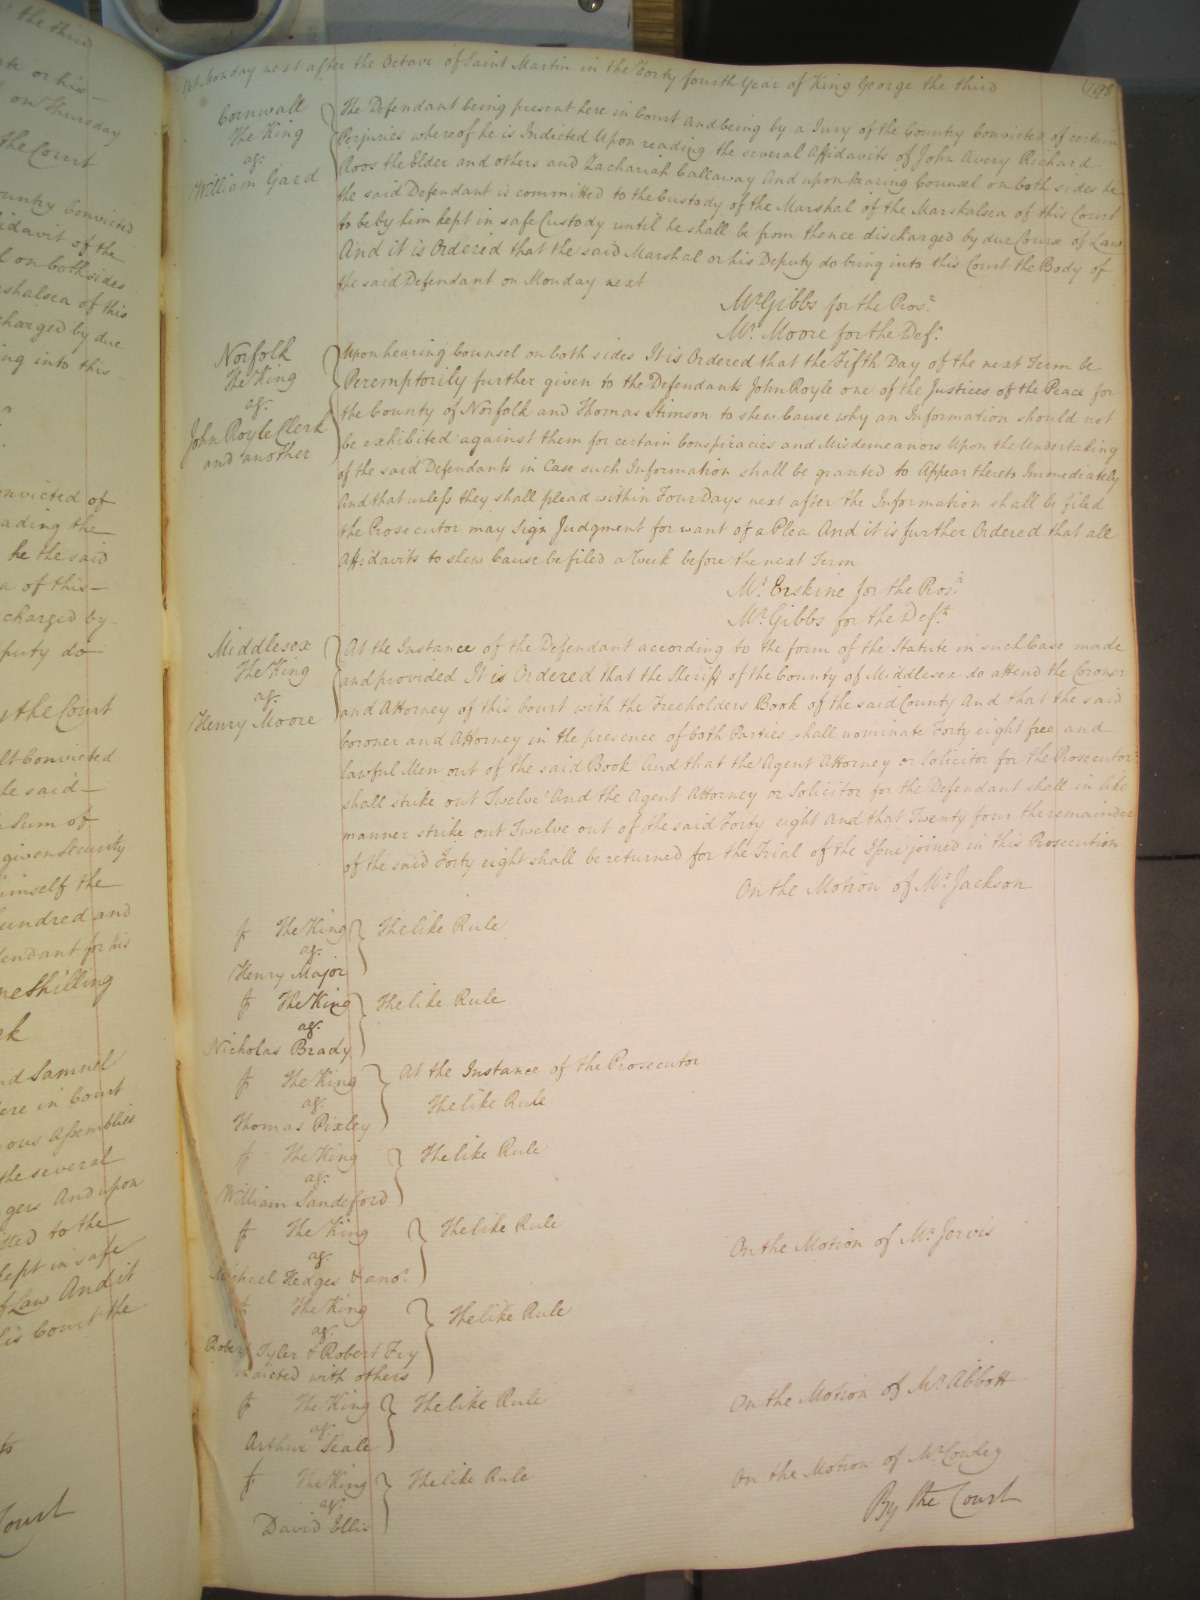 the third
ate or his
on Thursday
the Court
ountry Convicted
idavit of the
l on both sides
rshalsea of this
charged by due
ing into this
onvicted of
ading the
he the said
a of this
charged by
puty do
y the Court
lt Convicted
he said
Sum of
given Security
imself the
hundred and
endant for his
ne Shilling
nd Samuel
ere in Court
ous Assemblies
the several
gers And upon
tted to the
kept in safe
f Law And it
his Court the
to
Court
Monday next after the Octave of Saint Martin in the Forty fourth Year of King George the third
198
Cornwall
The King
agt.
William Gard
The Defendant being present here in Court and being by a Jury of the Country Convicted of certain
Perjuries whereof he is Indicted Upon reading the several Affidavits of John Avery Richard
Roos the Elder and others and Zachariah Callaway And upon hearing Counsel on both sides he
the said Defendant is committed to the Custody of the Marshal of the Marshalsea of this Court
to be by him kept in safe Custody until he shall be from thence discharged by due Course of Law
And it is Ordered that the said Marshal or his Deputy do bring into this Court the Body of
the said Defendant on Monday next
Mr. Gibbs for the Pros.r
Mr. Moore for the Def.t
Norfolk
The King
agt.
John Royle Clerk
and another
Upon hearing Counsel on both sides It is Ordered that the Fifth Day of the next Term be
Peremptorily further given to the Defendants John Royle one of the Justices of the Peace for
the County of Norfolk and Thomas Stimson to shew Cause why an Information should not
be exhibited against them for certain Conspiracies and Misdemeanors Upon the Undertaking
of the said Defendants in Case such Information shall be granted to Appear thereto Immediately
And that unless they shall plead within Four Days next after the Information shall be filed
the Prosecutor may Sign Judgment for want of a Plea And it is further Ordered that all
Affidavits to shew Cause be filed a Week before the next Term
Mr. Erskine for the Pros.r
Mr. Gibbs for the Def.ts
Middlesex
The King
agt.
Henry Moore
At the Instance of the Defendant according to the form of the Statute in such Case made
and provided It is Ordered that the Sheriff of the County of Middlesex do attend the Coroner
and Attorney of this Court with the Freeholders Book of the said County And that the said
Coroner and Attorney in the presence of both Parties shall nominate Forty eight free and
lawful Men out of the said Book And that the Agent Attorney or Solicitor for the Prosecutor
shall strike out Twelve And the Agent Attorney or Solicitor for the Defendant shall in like
manner strike out Twelve out of the said Forty eight And that Twenty four the remainder
of the said Forty eight shall be returned for the Trial of the Issue joined in this Prosecution
On the Motion of Mr. Jackson
The King
agt.
Henry Major
The like Rule
The King
agt.
Nicholas Brady
The like Rule
The King
agt.
Thomas Pixley
At the Instance of the Prosecutor
The like Rule
The King
agt.
William Sandeford
The like Rule
The King
agt.
Michael Hedges & ano.r
The like Rule
On the Motion of Mr. Jervis
The King
agt.
Robert Tyler & Robert Fry
indicted with others
The like Rule
The King
agt.
Arthur Seale
The like Rule
On the Motion of Mr. Abbott
The King
agt.
David Ellis
The like Rule
On the Motion of Mr. Cowley
By the Court